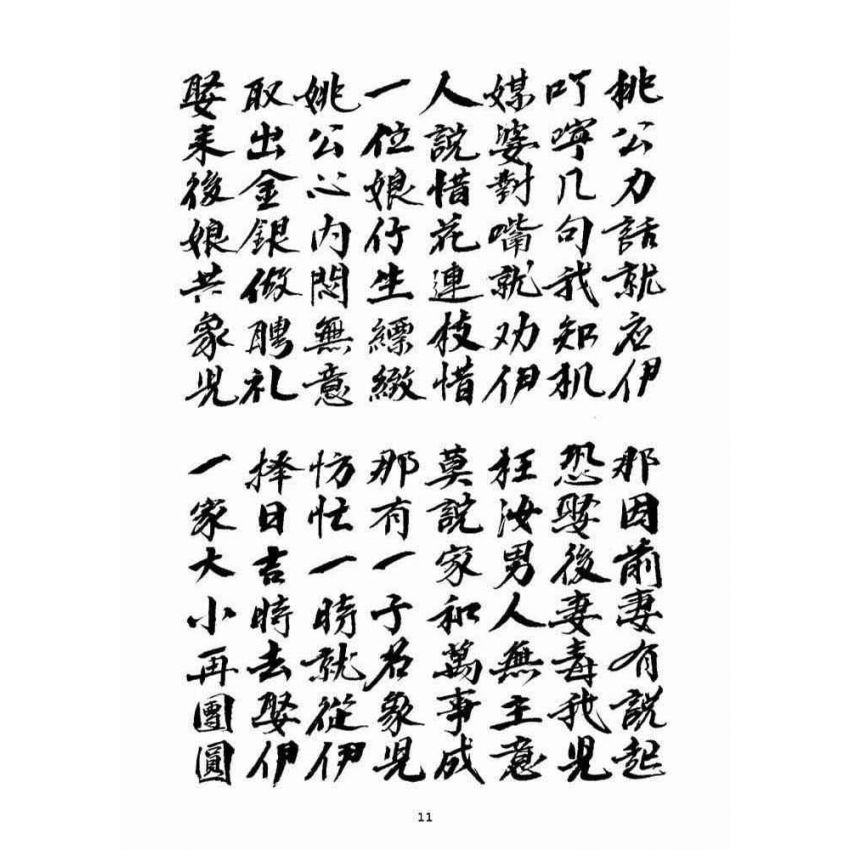 桃公力話就应伊 那因前妻有説起
叮嚀几句我知机 恐娶後妻毒我児
媒婆對嘴就劝伊 枉汝男人無主意
人説惜花連枝惜 莫説家和萬事成
一位娘仔生縹緻 那有一子名象児
姚公心内悶無意 彷忙一時就從伊
取出金銀做聘礼 择日吉時去娶伊
娶来後娘共象児 一家大小再團圓
11